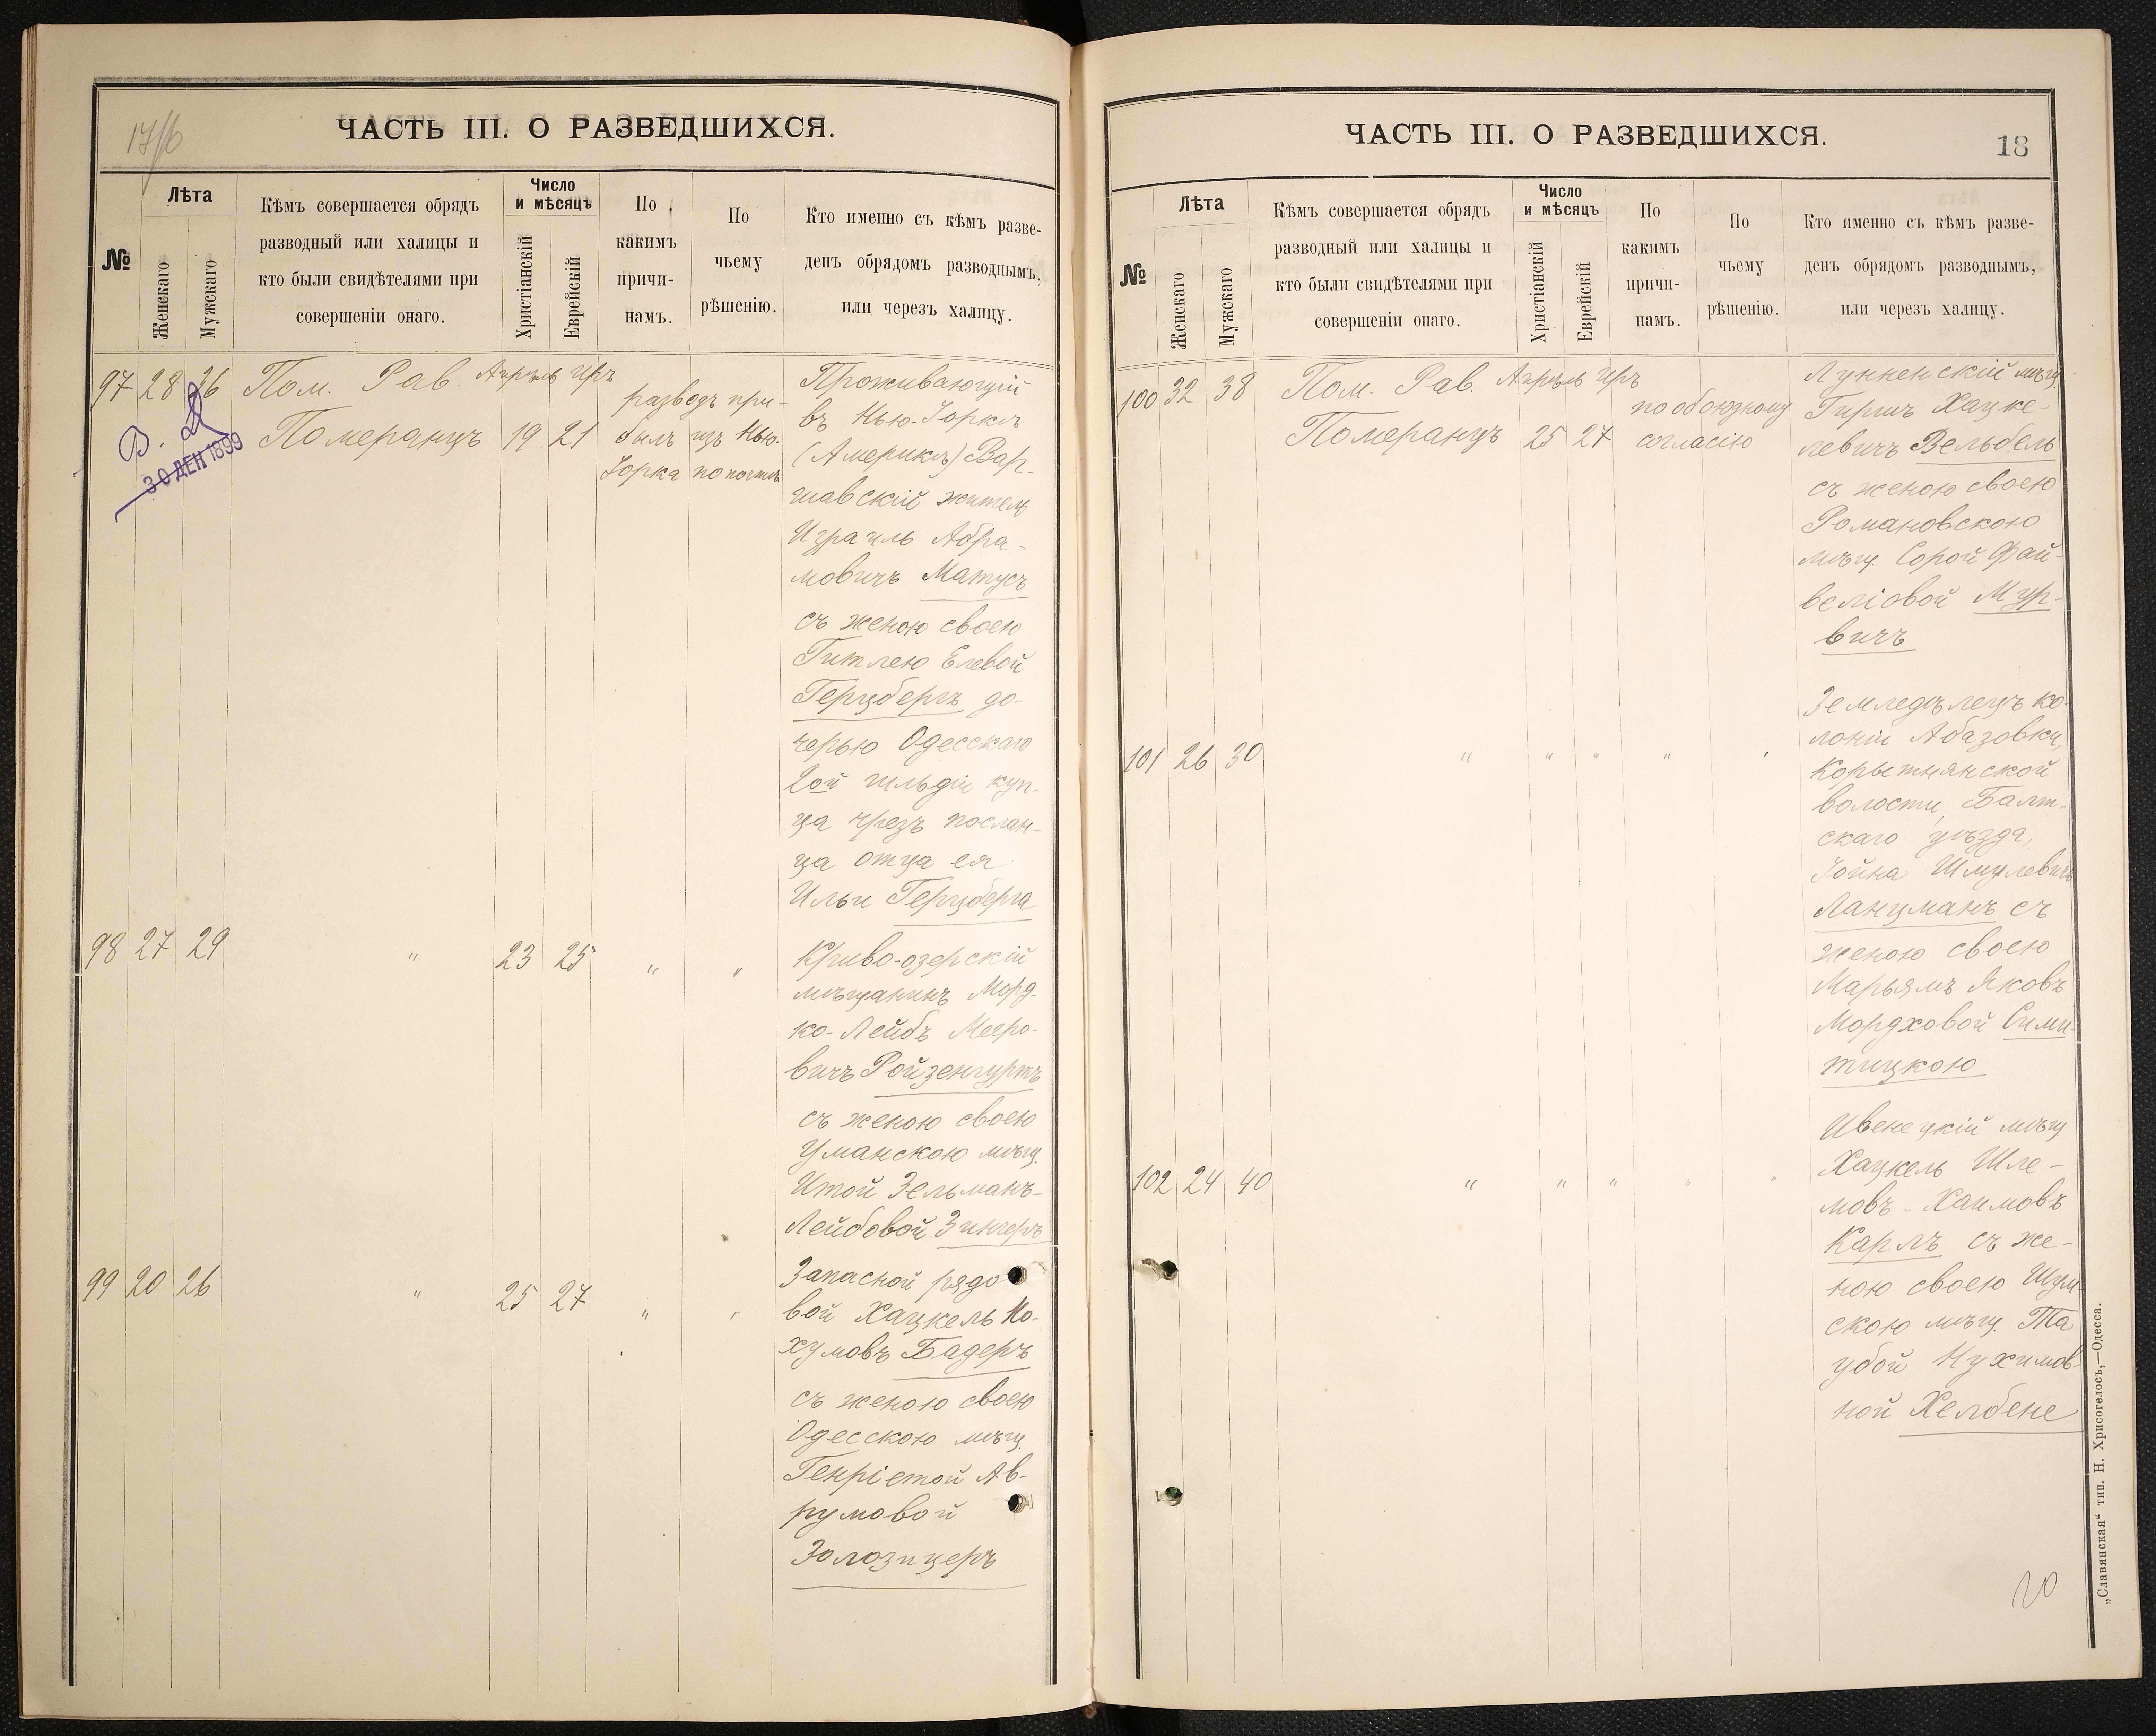 17/16
ЧАСТЬ III. О РАЗВЕДШИХСЯ.
№
Лѣта
Женскаго
Мужскаго
Кѣмъ совершается обрядъ
разводный или халицы и
кто были свидѣтелями при
совершеніи онаго.
Число
и мѣсяцъ
Христіанскій
Еврейскій
По
какимъ
причи-
намъ.
По
чьему
рѣшенію.
Кто именно съ кѣмъ разве-
денъ обрядомъ разводнымъ,
или черезъ халицу.
97 28 36 Пом. Рав. Апрѣль Иръ
Померанцъ 19 21
30 ДЕК 1899
разводъ при-
былъ изъ Нью-
Іорка по почтѣ
Проживающій
въ Нью-Іоркѣ
(Америкѣ) Вар-
шавскій житель
Израиль Абра-
мовичъ Матусъ
съ женою своею
Гитлею Елевой
Герцбергъ до-
черью Одесскаго
2ой гильдіи куп-
ца чрезъ послан-
ца отца ея
Ильи Герцберга
98 27 29 " 23 25 " "
Криво-озерскій
мѣщанинъ Морд-
ко-Лейбъ Мееро-
вичъ Ройзенгуртъ
съ женою своею
Уманскою мѣщ.
Итой Зельманъ-
Лейбовой Зингеръ
99 20 26 " 25 27 " "
Запасной рядо
вой Хацкель Но-
хумовъ Бадеръ
съ женою своею
Одесскою мѣщ.
Генріетой Ав-
румовой
Золозицеръ
ЧАСТЬ III. О РАЗВЕДШИХСЯ.
18
№
Лѣта
Женскаго
Мужскаго
Кѣмъ совершается обрядъ
разводный или халицы и
кто были свидѣтелями при
совершеніи онаго.
Число
и мѣсяцъ
Христіанскій
Еврейскій
По
какимъ
причи-
намъ.
По
чьему
рѣшенію.
Кто именно съ кѣмъ разве-
денъ обрядомъ разводнымъ,
или черезъ халицу.
100 32 38 Пом. Рав. Апрѣль Иръ
Померанцъ 25 27
по обоюдному
согласію
Лункенскій мѣщ.
Гиршъ Хацке-
левичъ Вельбель
съ женою своею
Романовскою
мѣщ. Сорой Фай-
веліовой Мур-
вичъ
101 26 30 " " " " "
Земледѣлецъ ко-
лоніи Абазовки,
Корытнянской
волости, Балт-
скаго уѣзда,
Іойна Шмулевичъ
Ланцманъ съ
женою своею
Марьямъ Яковъ
Мордховой Сими-
тицкою
102 24 40 " " " " "
Ивенецкій мѣщ
Хацкель Шле-
мовъ-Хаимовъ
Карлъ съ же-
ною своею Шум-
скою мѣщ. Та
убой Нухимов-
ной Хелбене
20
„Славянская“ тип. Н. Хрисогелосъ,—Одесса.